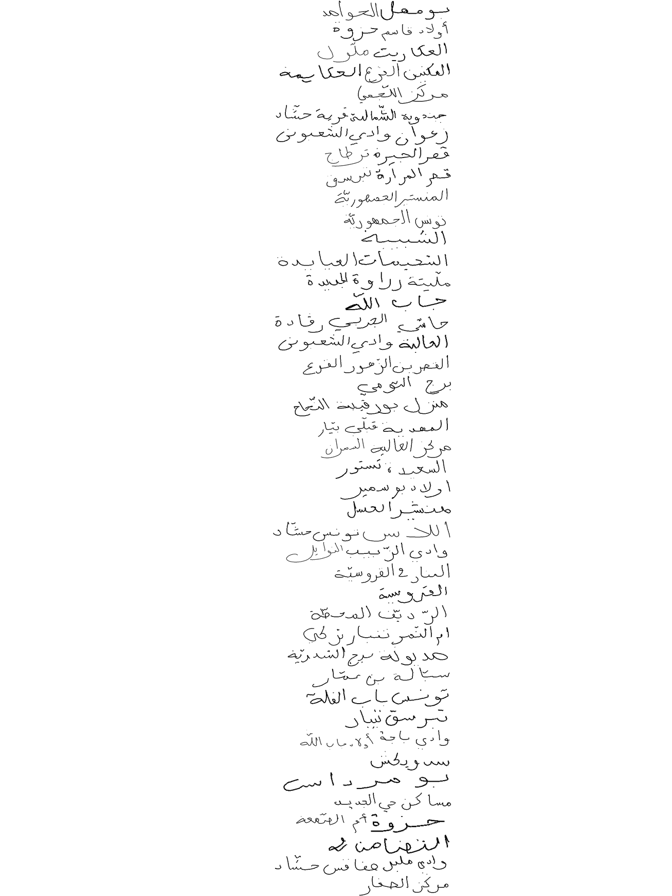 بومهل الحوامد
أولاد قاسم حزوة
العكاريت ملّول
المكنين الفرع الحكايمة
مركز اللّجمي
جندوبة الشّمالية قرية حشّاد
زغوان وادي الشعبوني
قصر الحيرة قرطاج
قصر المرارة تبرسق
المنستير الجمهوريّة
تونس الجمهوريّة
الشبيبة
النحيسات العبايدة
ملّيتة زراوة الجديدة
جاب اللّه
حامّي الجربي رقادة
العالية وادي الشعبوني
القصر بن الزهور الفرع
برج التومي
منزل بورقيبة النّجاح
المهدية قبلّي بتّار
مركز العالية
السعيد، تستور
اولاد بوسمير
هنشير العسل
اللاس تونس حشّاد
وادي الزّبيب النوايل
المنار 2 الفروسيّة
العروسة
الرّديّف المحطّة
ام الثمر نيبار تركي
هدبولة برج الشدريّة
ستالة بن عمّار
تونس باب القلّة
تبرسق نيبار
وادي باجة أولاد جاب اللّه
سدويكش
بومرداس
مساكن حي الجديد
حزوة أم الصّمعة
التضامن له
وادي مليل صفاقس حشّاد
مركز الصفار